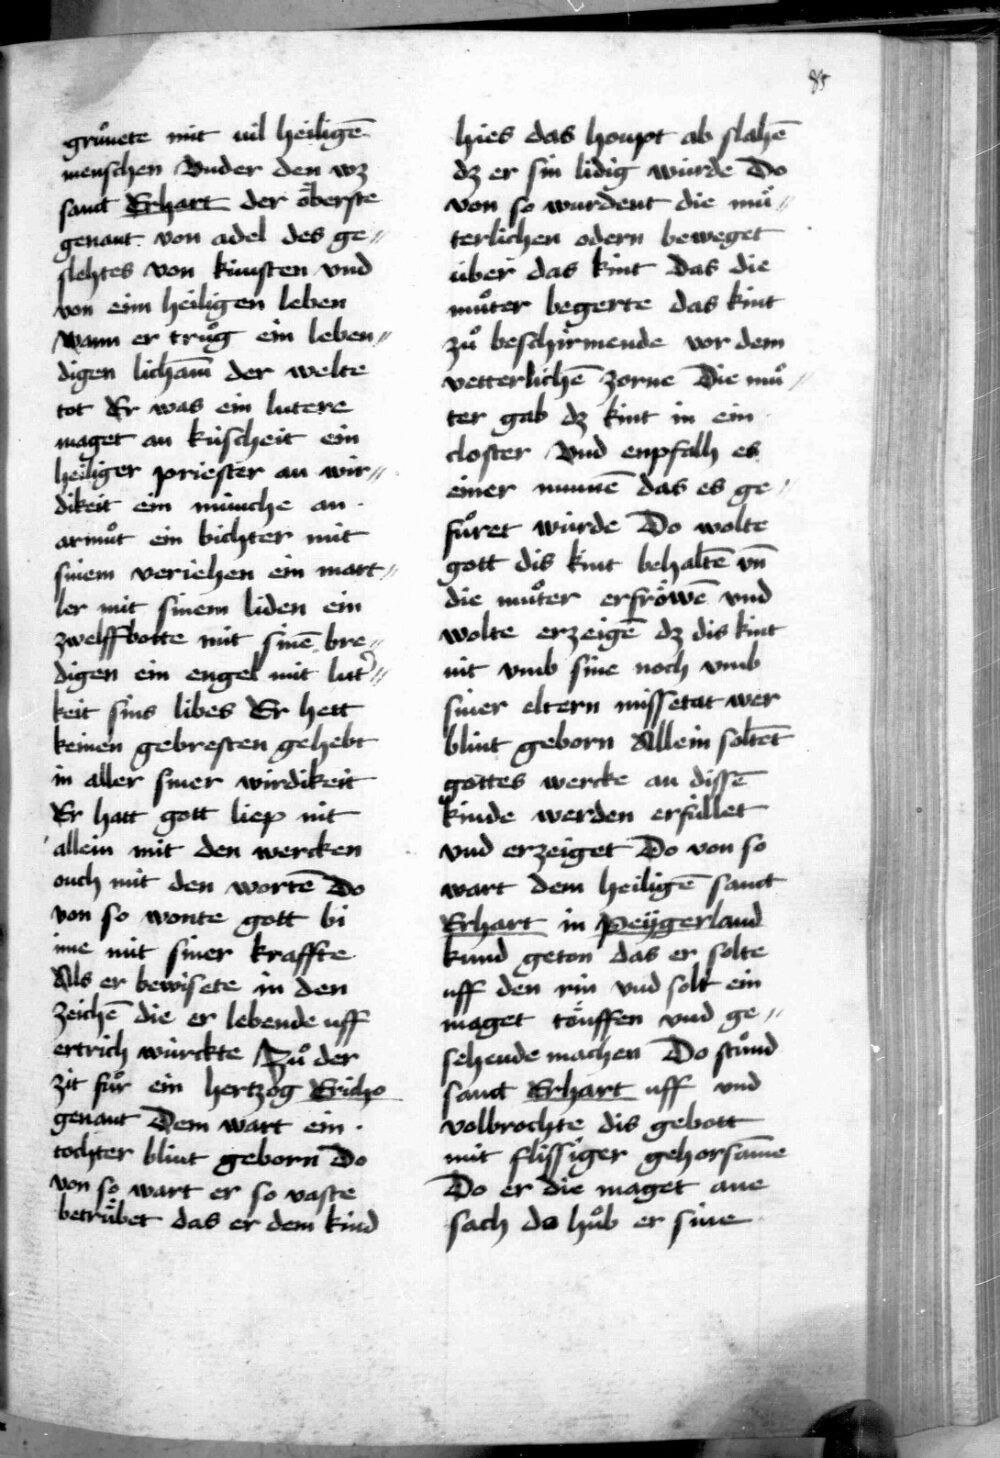 85
gruͦnete mit uil heiligē
menschen Vnder den wz
sanct Erhart der oͤberste
genant von adel des ge„
slehtes von kunsten vnd
von eim heiligen leben
Wann er truͦg ein leben„
digen lichām der welte
tot Er was ein lutere
maget an kúscheit ein
heiliger priester an wir„
dikeit ein múnche an
armuͦt ein bichter mit
sinem veriehen ein mart„
ler mit sinem liden ein
zwelffbotte mit sinē bre„
digen ein engel mit lut'„
keit sins libes Er hett
keinen gebresten gehebt
in aller siner wirdikeit
Er hatt gott liep nit
allein mit den wercken
ouch mit den wortē Do
von so wonte gott bi
ime mit siner kraffte
Als er bewisete in den
zeichē die er lebende uff
ertrich wúrckte Zuͦ der
zit fuͦr ein hertzog Ericho
genant Dem wart ein
tochter blint geborn Do
von so wart er so vaste
betruͤbet das er dem kind
hies das houpt ab slahē
dz er sin lidig wúrde Do
von so wurdent die muͤ„
terlichen odern beweget
úber das kint Das die
muͦter begerte das kint
zuͦ beschirmende vor dem
vetterlichē zorne Die muͦ„
ter gab dz kint in ein
closter Vnd enpfalh es
einer nunnē das es ge„
fuͤret wúrde Do wolte
gott dis kint behaltē vn̄
die muͦter erfroͤwē vnd
wolte erzeigē dz dis kint
nit vmb sine noch vmb
siner eltern missetat wer
blint geborn Allein soltēt
gottes wercke an dissē
kinde werden erfúllet
vnd erzeiget Do von so
wart dem heiligē sanct
Erhart in Peÿgerland
kund geton das er solte
uff den rin vnd solt ein
maget toͤuffen vnd ge„
sehende machen Do stuͦnd
sanct Erhart uff vnd
volbrochte dis gebott
mit flissiger gehorsāme
Do er die maget ane
sach do huͦb er sine